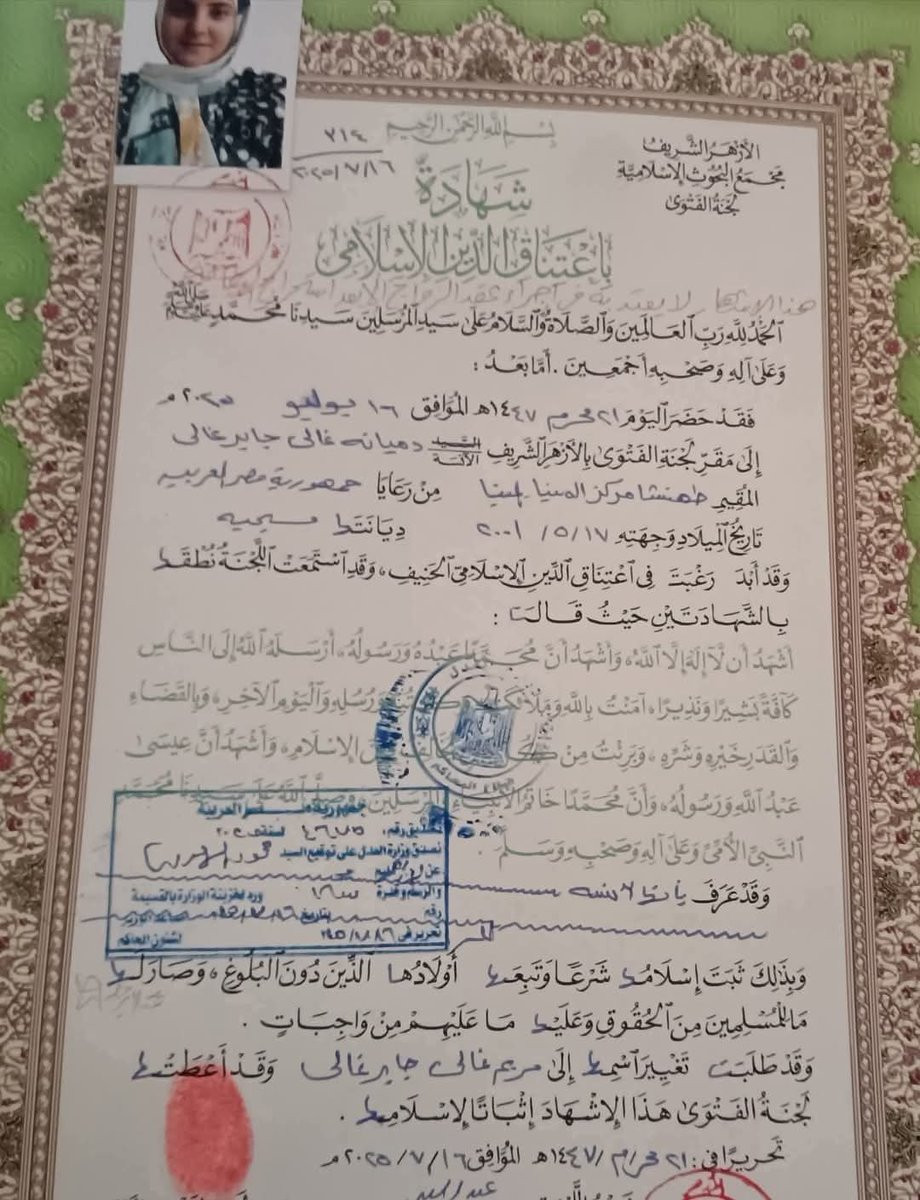 بِسْمِ اللهِ الرَّحْمٰنِ الرَّحِيمِ
الأَزْهَرُ الشَّرِيفُ
مَجْمَعُ البُحُوثِ الإِسْلَامِيَّةِ
لَجْنَةُ الفَتْوَىٰ
٣١٤
٢٠٢٥/٧/١٦
شَهَادَةٌ
بِاعْتِنَاقِ الدِّينِ الإِسْلَامِي
هذا الإشهار لا يعتد به في إجراء عقد الزواج إلا بعد
الحَمْدُ لِلهِ رَبِّ العَالَمِينَ وَالصَّلَاةُ وَالسَّلَامُ عَلَى سَيِّدِ المُرْسَلِينَ سَيِّدِنَا مُحَمَّدٍ ﷺ
وَعَلَى آلِهِ وَصَحْبِهِ أَجْمَعِينَ . أَمَّا بَعْدُ :
فَقَدْ حَضَرَ اليَوْمَ ٢١ محرم ١٤٤٧هـ المُوَافِقَ ١٦ يوليو ٢٠٢٥م
إِلَى مَقَرِّ لَجْنَةِ الفَتْوَى بِالأَزْهَرِ الشَّرِيفِ السيد الآنسة دميانه غالى جابر غالى
المُقِيمِ طهنشا مركز المنيا المنيا مِنْ رَعَايَا جمهورية مصر العربيه
تَارِيخُ المِيلَادِ وَجِهَتِهِ ٢٠٠١/٥/١٧ دِيَانَتها مسيحيه
وَقَدْ أَبْدَت رَغْبَتَها فِي اعْتِنَاقِ الدِّينِ الإِسْلَامِيِّ الحَنِيفِ ، وَقَدِ اسْتَمَعَتْ اللَّجْنَةُ نُطْقَها
بِالشَّهَادَتَيْنِ حَيْثُ قَالَت :
أَشْهَدُ أَن لَّا إِلَهَ إِلَّا اللهُ ، وَأَشْهَدُ أَنَّ مُحَمَّدًا عَبْدُهُ وَرَسُولُهُ ، أَرْسَلَهُ اللهُ إِلَى النَّاسِ
كَافَّةً بَشِيرًا وَنَذِيرًا ، آمَنْتُ بِاللهِ وَمَلَائِكَتِهِ وَكُتُبِهِ وَرُسُلِهِ وَاليَوْمِ الآخِرِ ، وَبِالقَضَاءِ
وَالقَدَرِ خَيْرِهِ وَشَرِّهِ ، وَبَرِئْتُ مِنْ كُلِّ الإِسْلَامِ ، وَأَشْهَدُ أَنَّ عِيسَىٰ
عَبْدُ اللهِ وَرَسُولُهُ ، وَأَنَّ مُحَمَّدًا خَاتَمُ الأَنْبِيَاءِ وَالمُرْسَلِينَ ، وَصَلَّى اللهُ عَلَىٰ سَيِّدِنَا مُحَمَّدٍ
النَّبِيِّ الأُمِّيِّ وَعَلَى آلِهِ وَصَحْبِهِ وَسَلَّمَ .
جمهورية مصر العربية
تصدق وزارة العدل على توقيع السيد
ورد لخزينة الوزارة بالقسيمة
رقم بتاريخ
تحريرا في
لشئون المحاكم
وَقَدْ عَرَفَ
وَبِذَلِكَ ثَبَتَ إِسْلَامُها شَرْعًا وَتَبِعَها أَوْلَادُها الَّذِينَ دُونَ البُلُوغِ ، وَصَارَ لَها
مَا لِلْمُسْلِمِينَ مِنَ الحُقُوقِ وَعَلَيْها مَا عَلَيْهِمْ مِنْ وَاجِبَاتٍ .
وَقَدْ طَلَبَت تَغْيِيرَ اسْمِها إِلَى مريم غالى جابر غالى وَقَدْ أَعْطَتْها
لَجْنَةُ الفَتْوَىٰ هَذَا الإِشْهَادَ إِثْبَاتًا لِإِسْلَامِها .
تَحْرِيرًا فِي : ٢١ محرم /١٤٤٧هـ المُوَافِقَ ٢٠٢٥/٧/١٦م